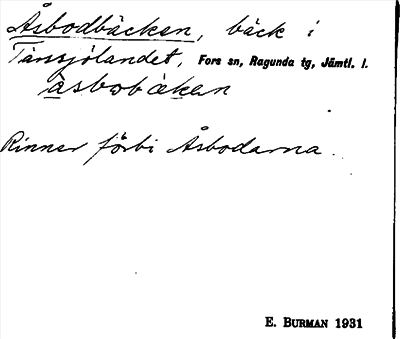 Åsbodbäcken, bäck i
Tännsjölandet, Fors sn, Ragunda tg, Jämtl. l.
Rinner förbi Åsbodarna.
E. BURMAN 1931